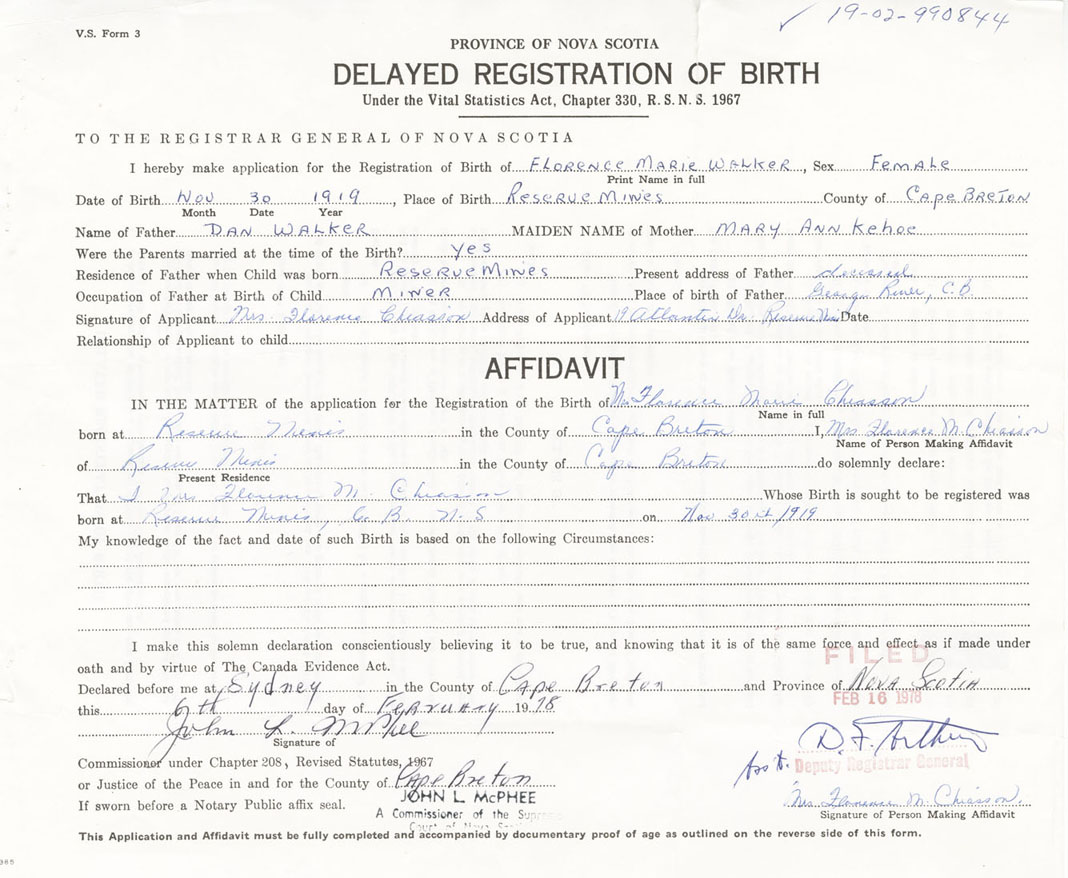 V.S. Form 3
✓ 19-02-990844
PROVINCE OF NOVA SCOTIA
DELAYED REGISTRATION OF BIRTH
Under the Vital Statistics Act, Chapter 330, R.S.N.S. 1967
TO THE REGISTRAR GENERAL OF NOVA SCOTIA
I hereby make application for the Registration of Birth of FLORENCE MARIE WALKER, Sex FemaLe
Print Name in full
Date of Birth Nov 30 1919, Place of Birth Reserve Mines County of Cape Breton
Month Date Year
Name of Father DAN WALKER MAIDEN NAME of Mother MARY ANN Kehoe
Were the Parents married at the time of the Birth? Yes
Residence of Father when Child was born Reserve Mines Present address of Father deceased
Occupation of Father at Birth of Child MINER Place of birth of Father River, C.B.
Signature of Applicant Mrs. Florence Chiasson Address of Applicant 19 Atlantic Dr. Reserve Date
Relationship of Applicant to child
AFFIDAVIT
IN THE MATTER of the application for the Registration of the Birth of Mrs Florence Marie Chiasson
Name in full
born at Reserve Mines in the County of Cape Breton I, Mrs Florence M. Chiasson
Name of Person Making Affidavit
of Reserve Mines in the County of Cape Breton do solemnly declare:
Present Residence
That I Mrs Florence M. Chiasson Whose Birth is sought to be registered was
born at Reserve Mines, C.B. N.S on Nov 30 1919
My knowledge of the fact and date of such Birth is based on the following Circumstances:
I make this solemn declaration conscientiously believing it to be true, and knowing that it is of the same force and effect as if made under
FILED
oath and by virtue of The Canada Evidence Act.
Declared before me at Sydney in the County of Cape Breton and Province of Nova Scotia
FEB 16 1978
this day of February 1978
John L. McPhee
Signature of
D.F. Arthur
Commissioner under Chapter 208, Revised Statutes, 1967
Ass't. Deputy Registrar General
or Justice of the Peace in and for the County of Cape Breton
JOHN L McPHEE
Mrs. Florence M. Chiasson.
If sworn before a Notary Public affix seal.
A Commissioner of the Supreme
Signature of Person Making Affidavit
Court of Nova
This Application and Affidavit must be fully completed and accompanied by documentary proof of age as outlined on the reverse side of this form.